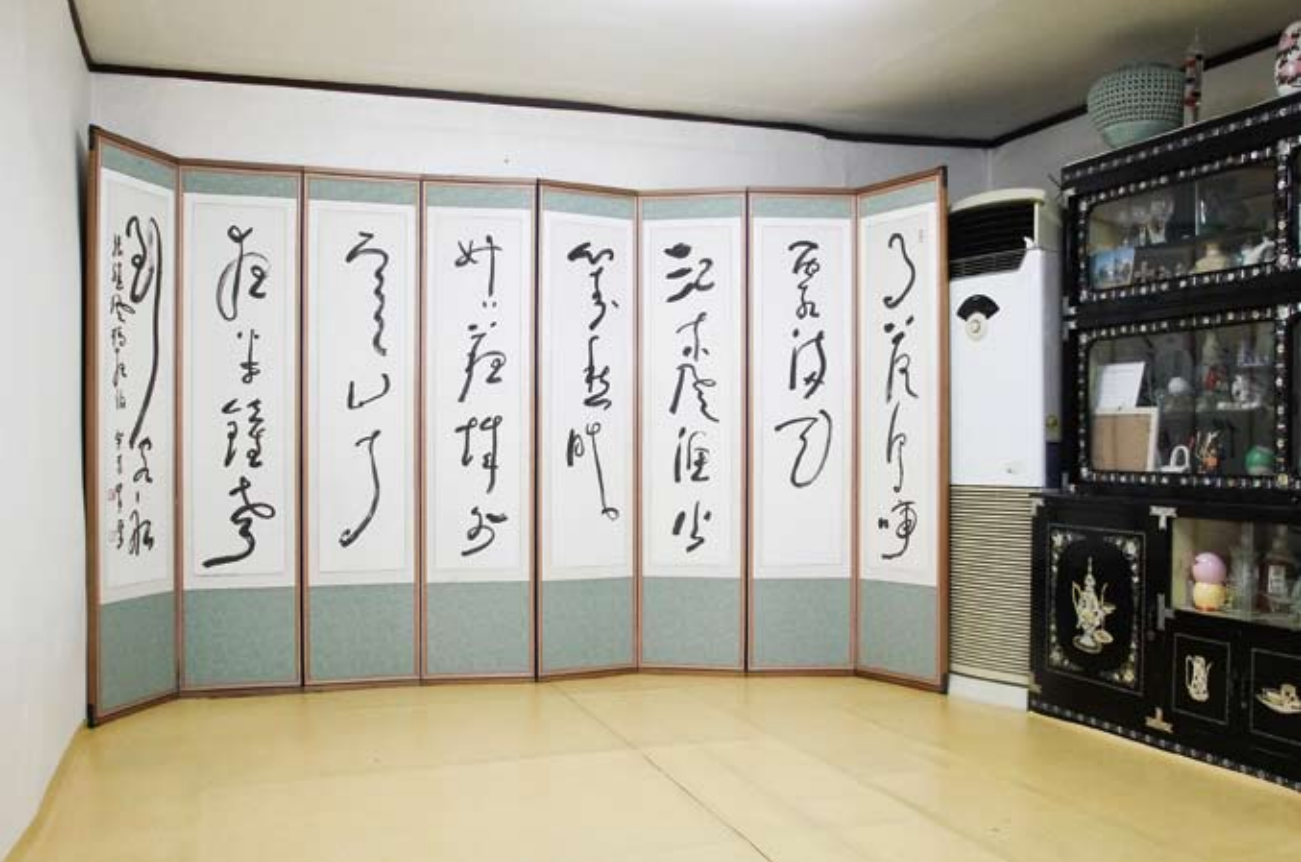 月落烏啼
霜滿天
江楓漁火
對愁眠
姑蘇城外
寒山寺
夜半鐘聲
到客船
張繼楓橋夜泊